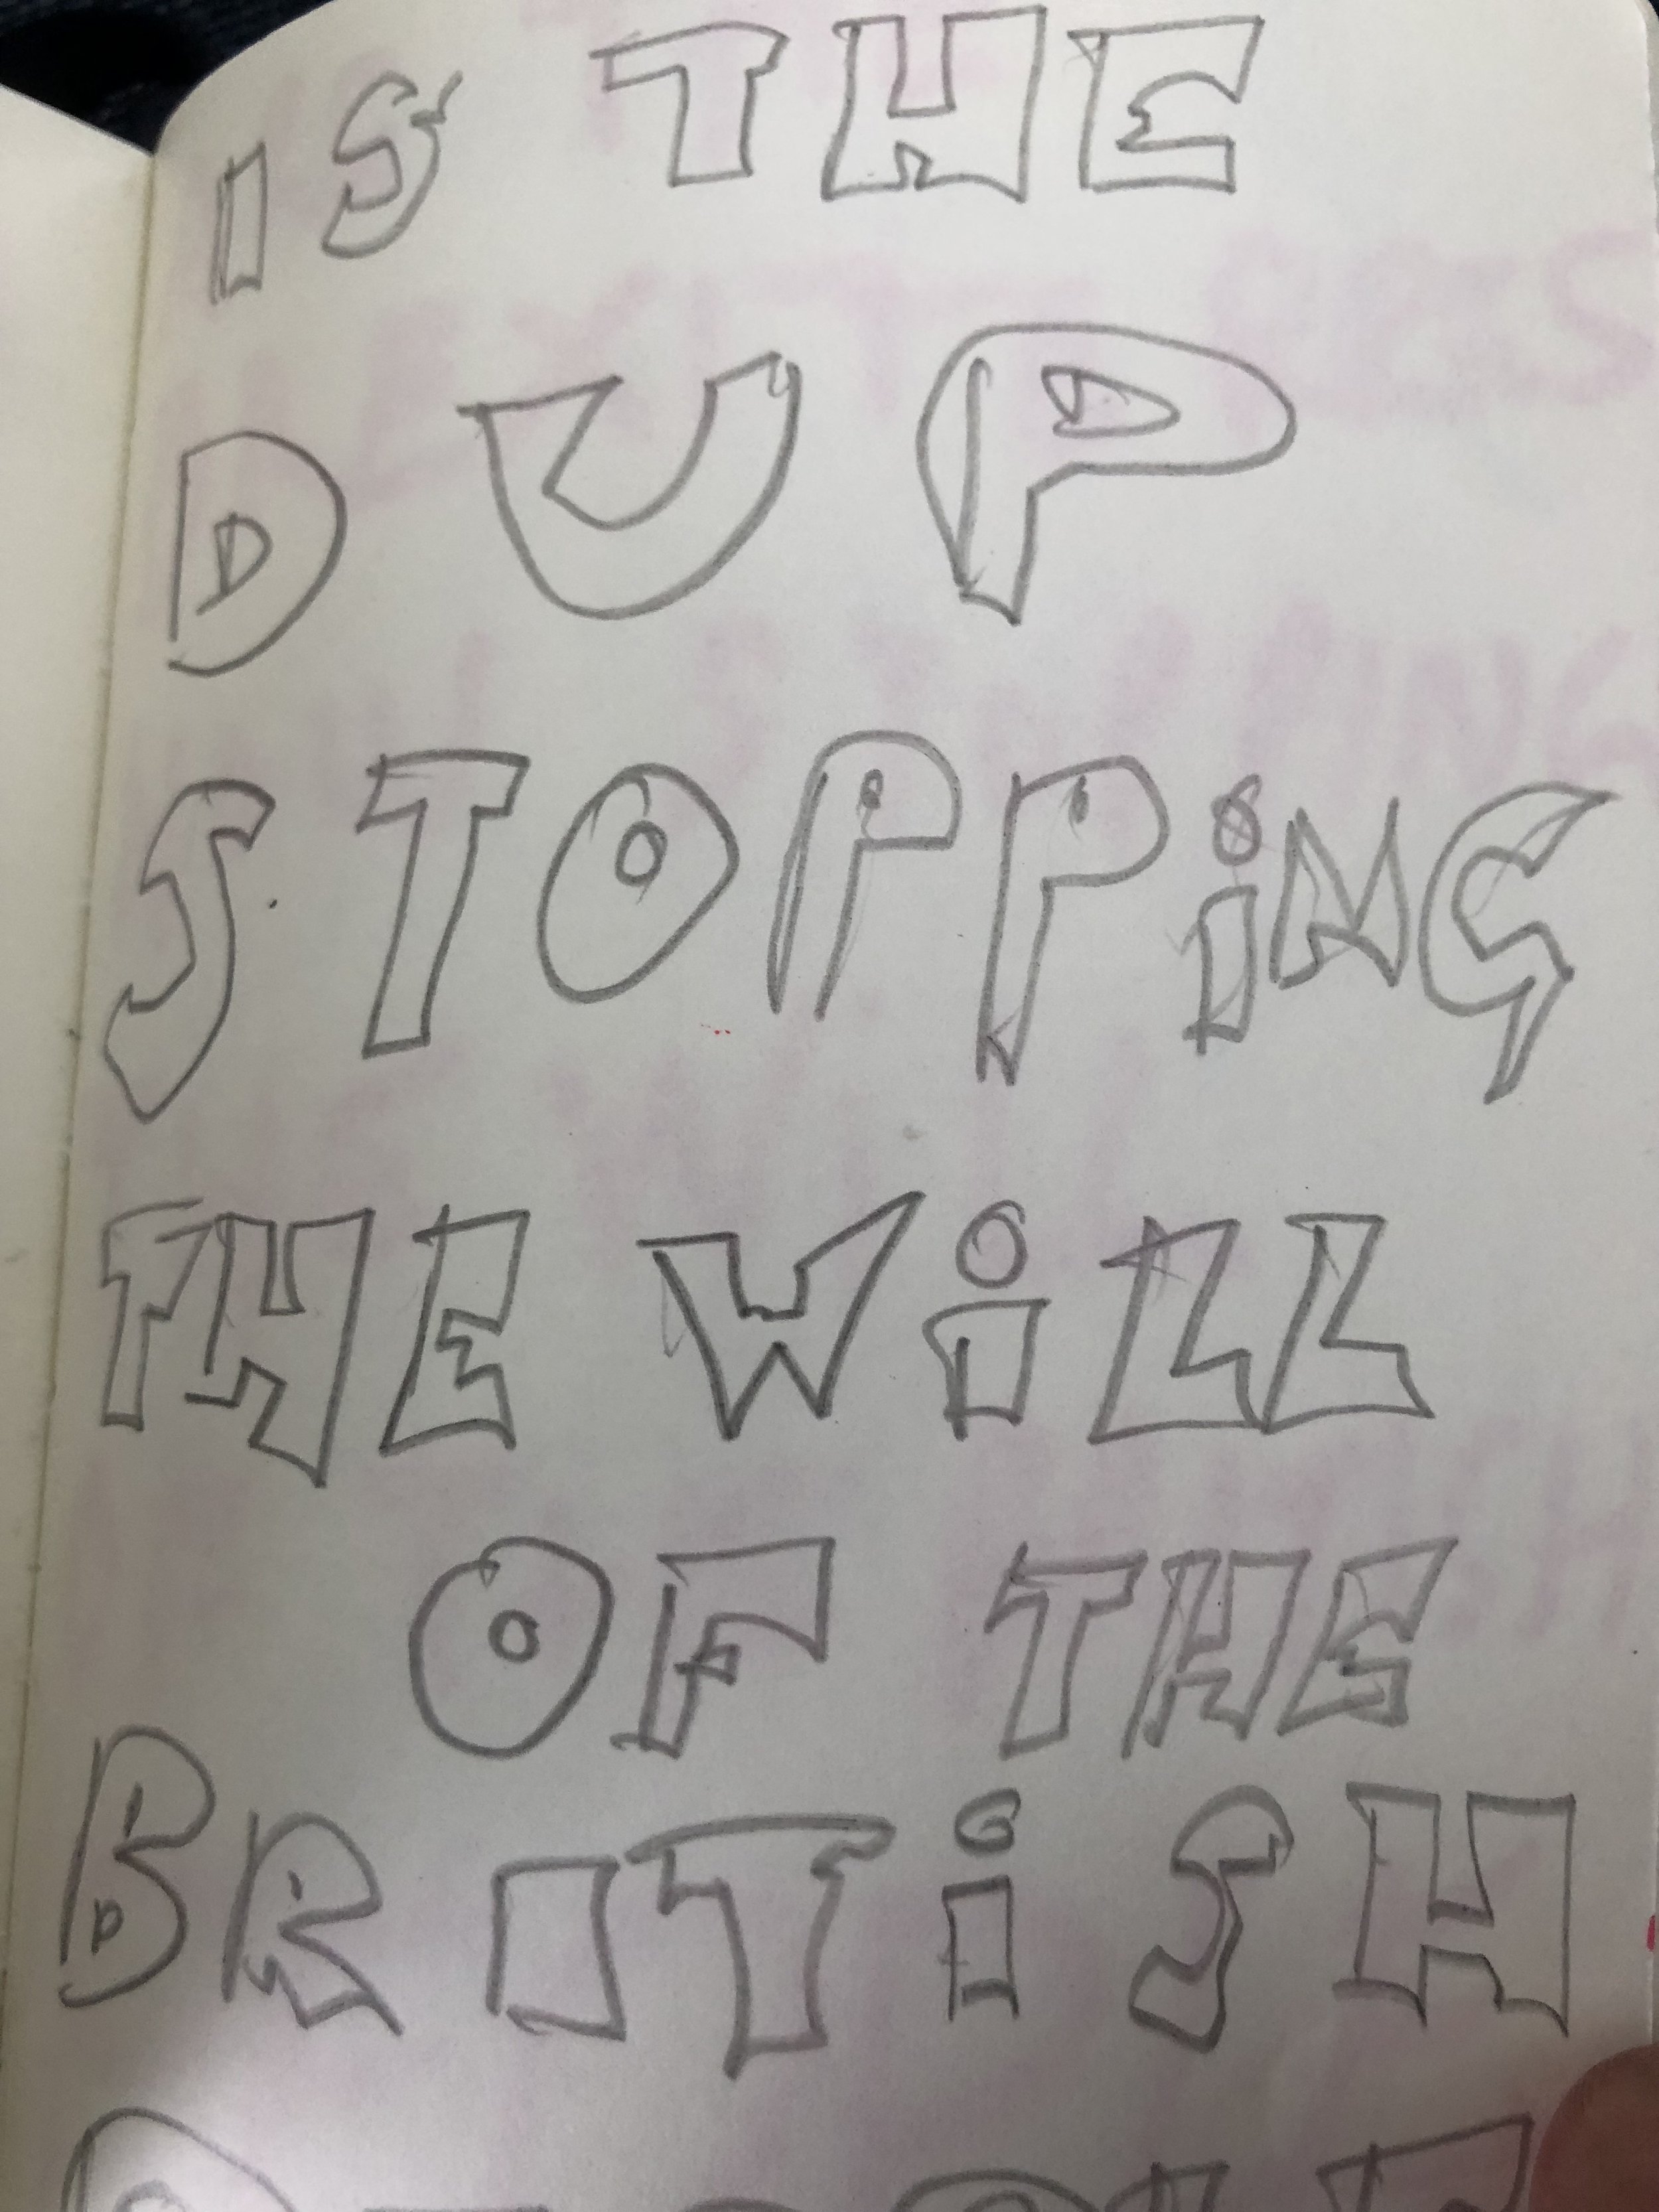 iS THE
DUP
STOPPiNG
THE WiLL
OF THE
BRITiSH